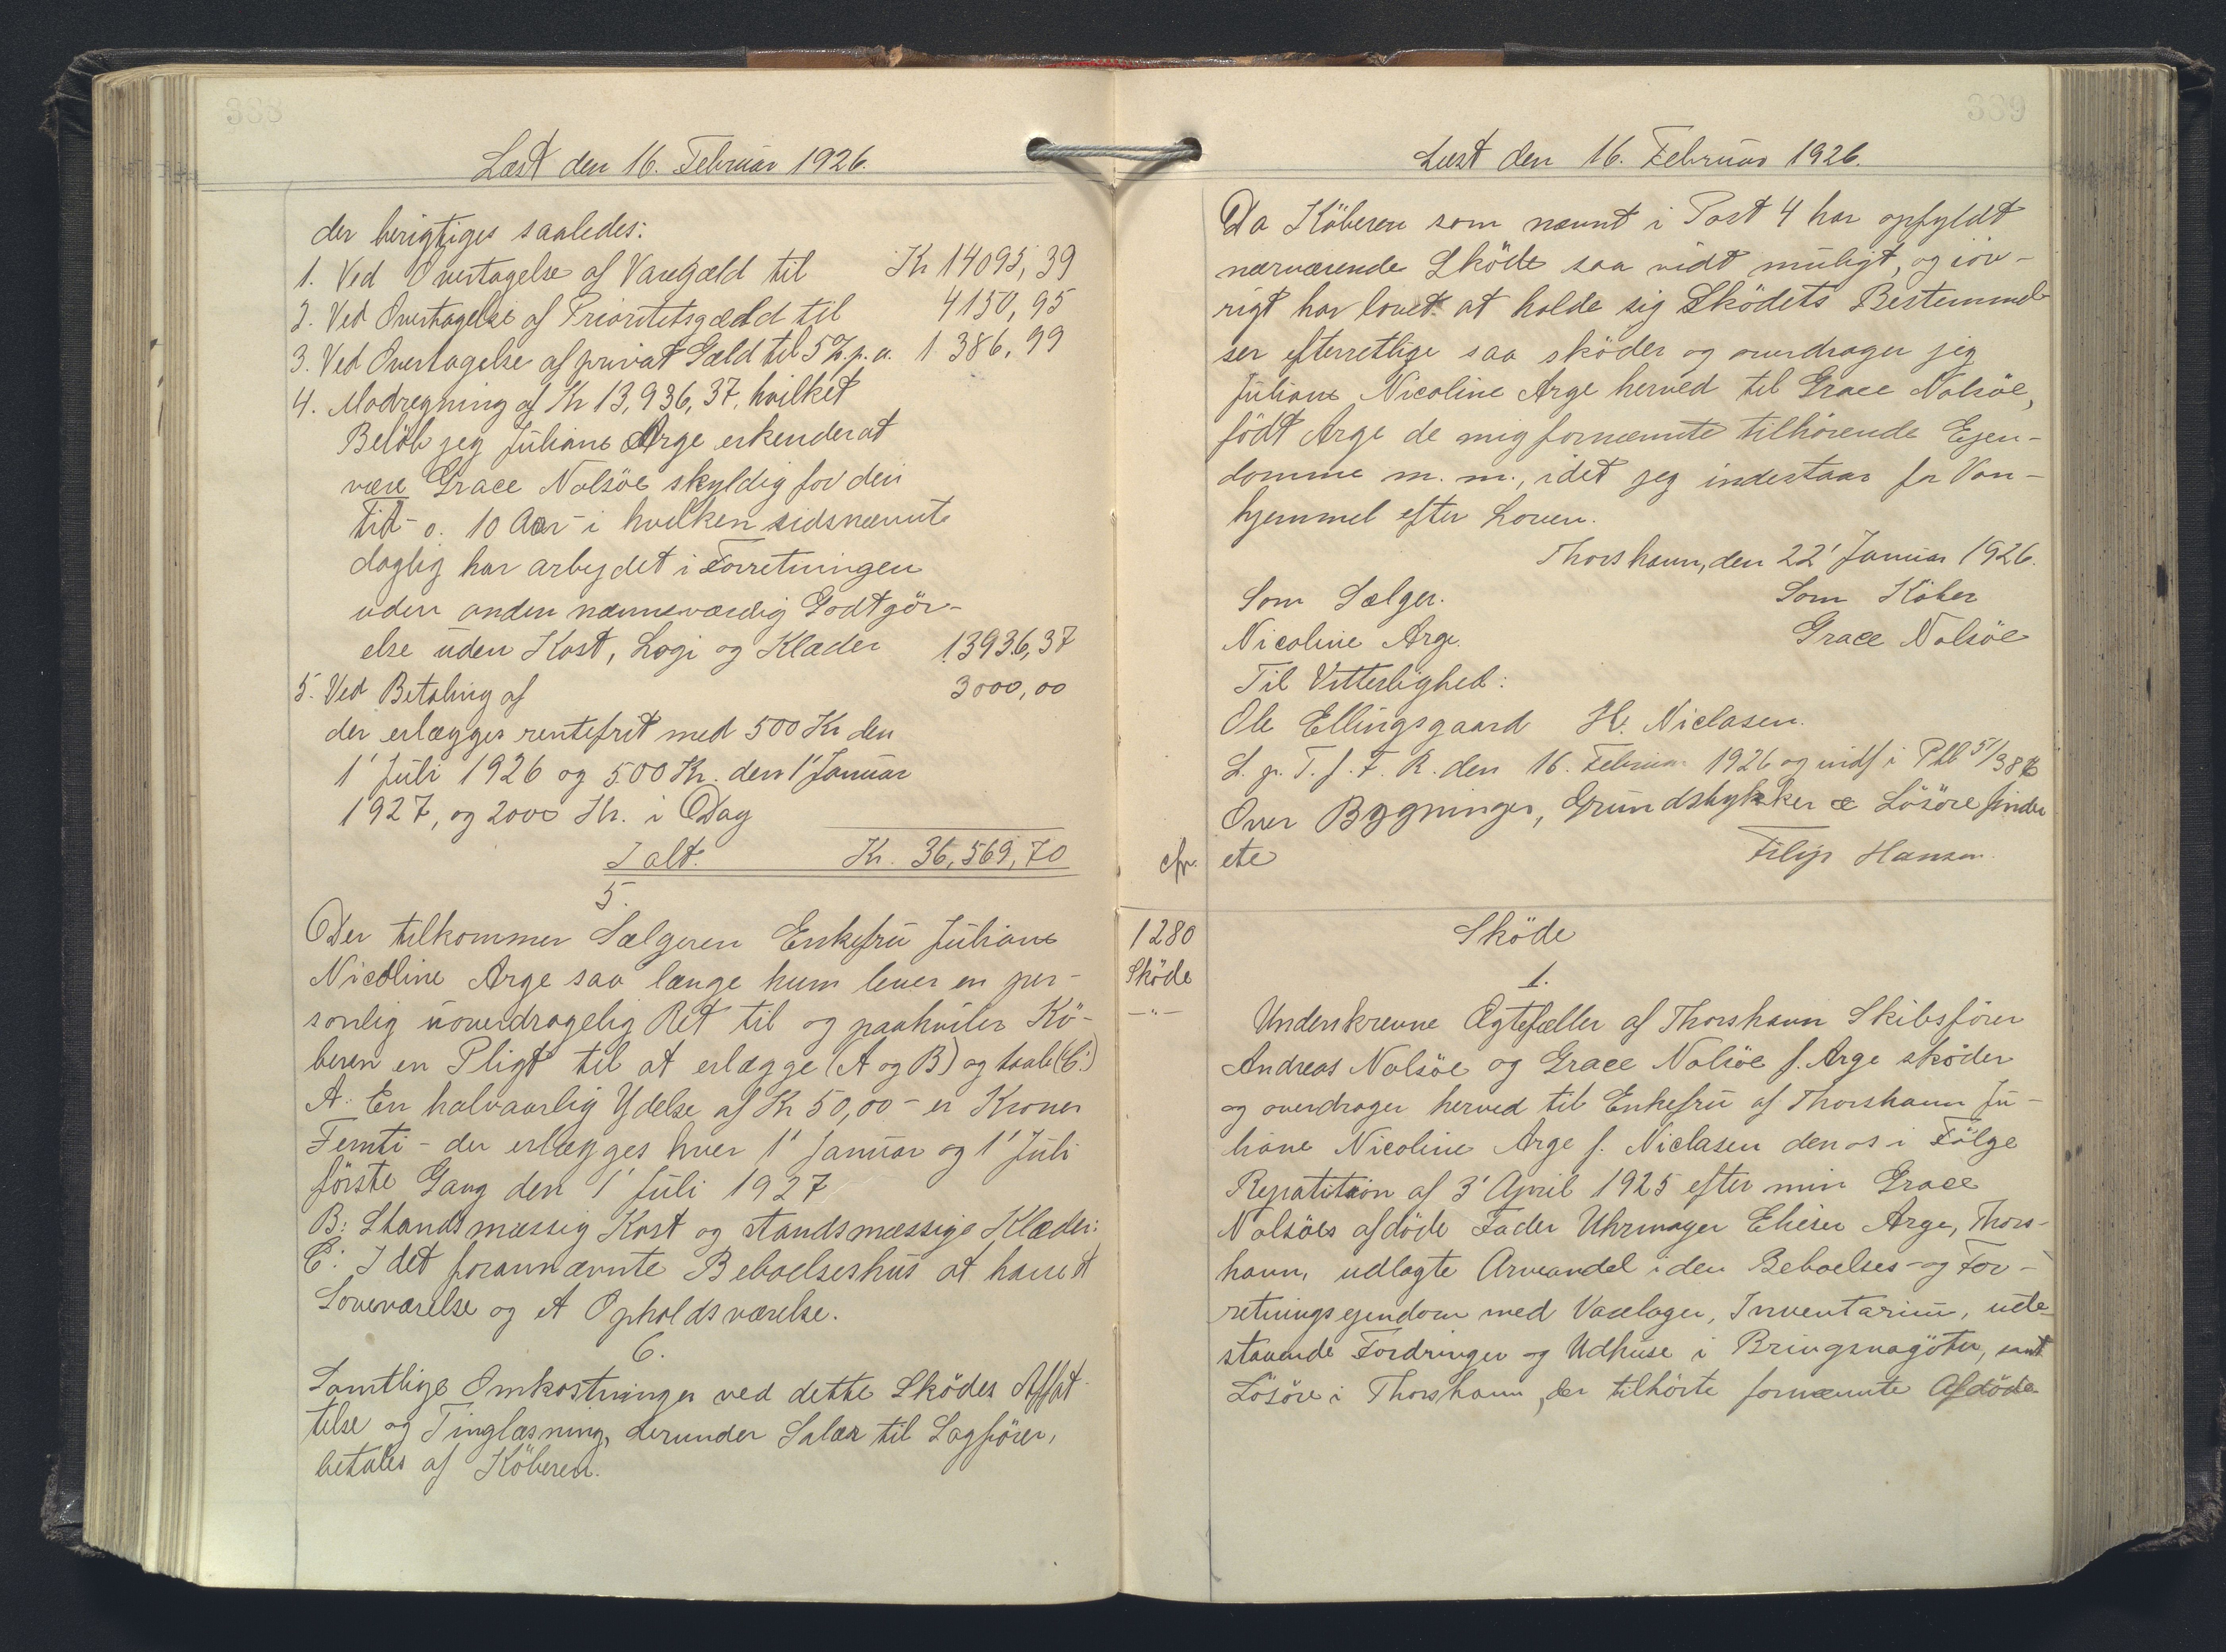 388
Læst den 16. Februar 1926.
der berigtiges saaledes:
1. Ved Overtagelse af Varegæld til Kr 14095,39
2. Ved Overtagelse af Prioritetsgæld til 4150,95
3. Ved Overtagelse af privat Gæld til 5 % p. a. 1386,99
4. Modregning af Kr 13,936,37, hvilket
Beløb jeg Juliane Arge erkender at
være Grace Nolsöe skyldig for den
Tid - o. 10 Aar - i hvilken sidsnævnte
daglig har arbejdet i Forretningen
uden anden nævneværdig Godtgör-
else uden Kost, Logi og Klæder 13936,37
5. Ved Betaling af 3000,00
der erlægges rentefrit med 500 Kr den
1' Juli 1926 og 500 Kr. den 1' Januar
1927, og 2000 Kr. i Dag
I alt. Kr. 36,569,70
5.
Der tilkommer Sælgeren Enkefru Juliane
Nicoline Arge saa længe hun lever en per-
sonlig uoverdragelig Ret til og paahviler Kö-
beren en Pligt til at erlægge (A og B) og taale (C:)
A: En halvaarlig Ydelse af Kr 50,00 - er Kroner
Femti - der erlægges hver 1' Januar og 1' Juli
förste Gang den 1' Juli 1927
B: Standsmæssig Kost og standsmæssige Klæder:
C: I det forannævnte Beboelseshus at have et
Soveværelse og et Opholdsværelse.
6.
Samtlige Omkostninger ved dette Sködes Affat-
telse og Tinglæsning, derunder Salær til Sagförer,
betales af Köberen.
389
Læst den 16. Februar 1926.
Da Köberen som nævnt i Post 4 har opfyldt
nærværende Sköde saa vidt muligt, og iöv-
rigt har lovet at holde sig Sködets Bestemmel-
ser efterretlige saa sköder og overdrager jeg
Juliane Nicoline Arge herved til Grace Nolsöe,
födt Arge de mig fornævnte tilhörende Ejen-
domme m. m., idet jeg indestaar for Van-
hjemmel efter Loven.
Thorshavn, den 22' Januar 1926.
Som Sælger. Som Köber
Nicoline Arge. Grace Nolsöe
Til Vitterlighed:
Ole Ellingsgaard H. Niclasen.
L. p. T. f. F. R. den 16. Februar 1926 og indf i Ptb 5/386
Over Bygninger, Grundstykker & Lösöre finder
cfr. etc Filip Hansen.
1280
Sköde
-"-
Sköde
1.
Underskrevne Ægtefæller af Thorshavn Skibsförer
Andreas Nolsöe og Grace Nolsöe f. Arge sköder
og overdrager herved til Enkefru af Thorshavn Ju-
liane Nicoline Arge f. Niclasen den os i Fölge
Repatition af 3' April 1925 efter min Grace
Nolsöes afdöde Fader Uhrmager Elieser Arge, Thors-
havn, udlagte Arveandel i den Beboelses- og For-
retningsejendom med Varelager, Inventarium, ude-
staaende Fordringer og Udhuse i Bringsnagötu, samt
Lösöre i Thorshavn, der tilhörte fornævnte Afdöde